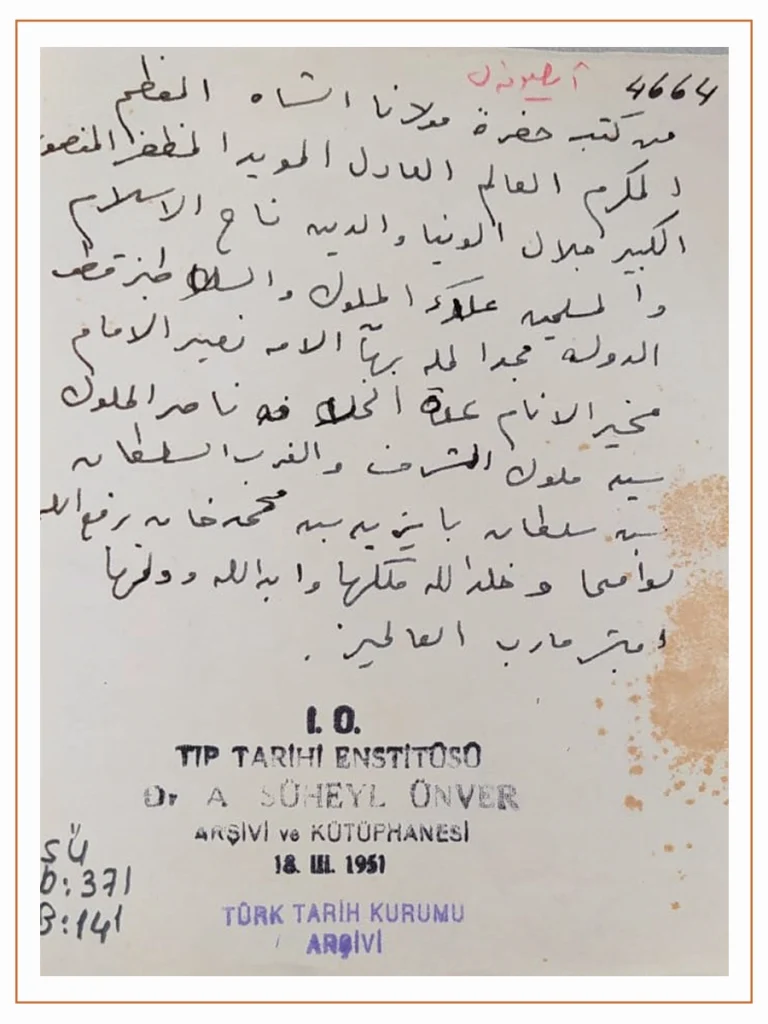 4664
من كتب حضرة مولانا الشاه العظم
المكرم العالم العادل المويد المظفر المنصور
الكبير جلال الدنيا والدين تاج الاسلام
والمسلمين علاء الملوك والسلاطين قطب
الدولة مجد المله بهآ الامه نصير الامام
مخير الانام عدة الخلافه ناصر الملوك
سيد ملوك الشرق والغرب السلطان
بن سلطان بايزيد بن محمد خان رفع الله
وخلد الله ملكها وابد الله دولتها
رب العالمين .
I. Ü.
TIP TARİHİ ENSTİTÜSÜ
Dr A SÜHEYL ÜNVER
ARŞİVİ ve KÜTÜPHANESİ
18. III. 1951
SÜ
D:371
B:141
TÜRK TARİH KURUMU
ARŞİVİ